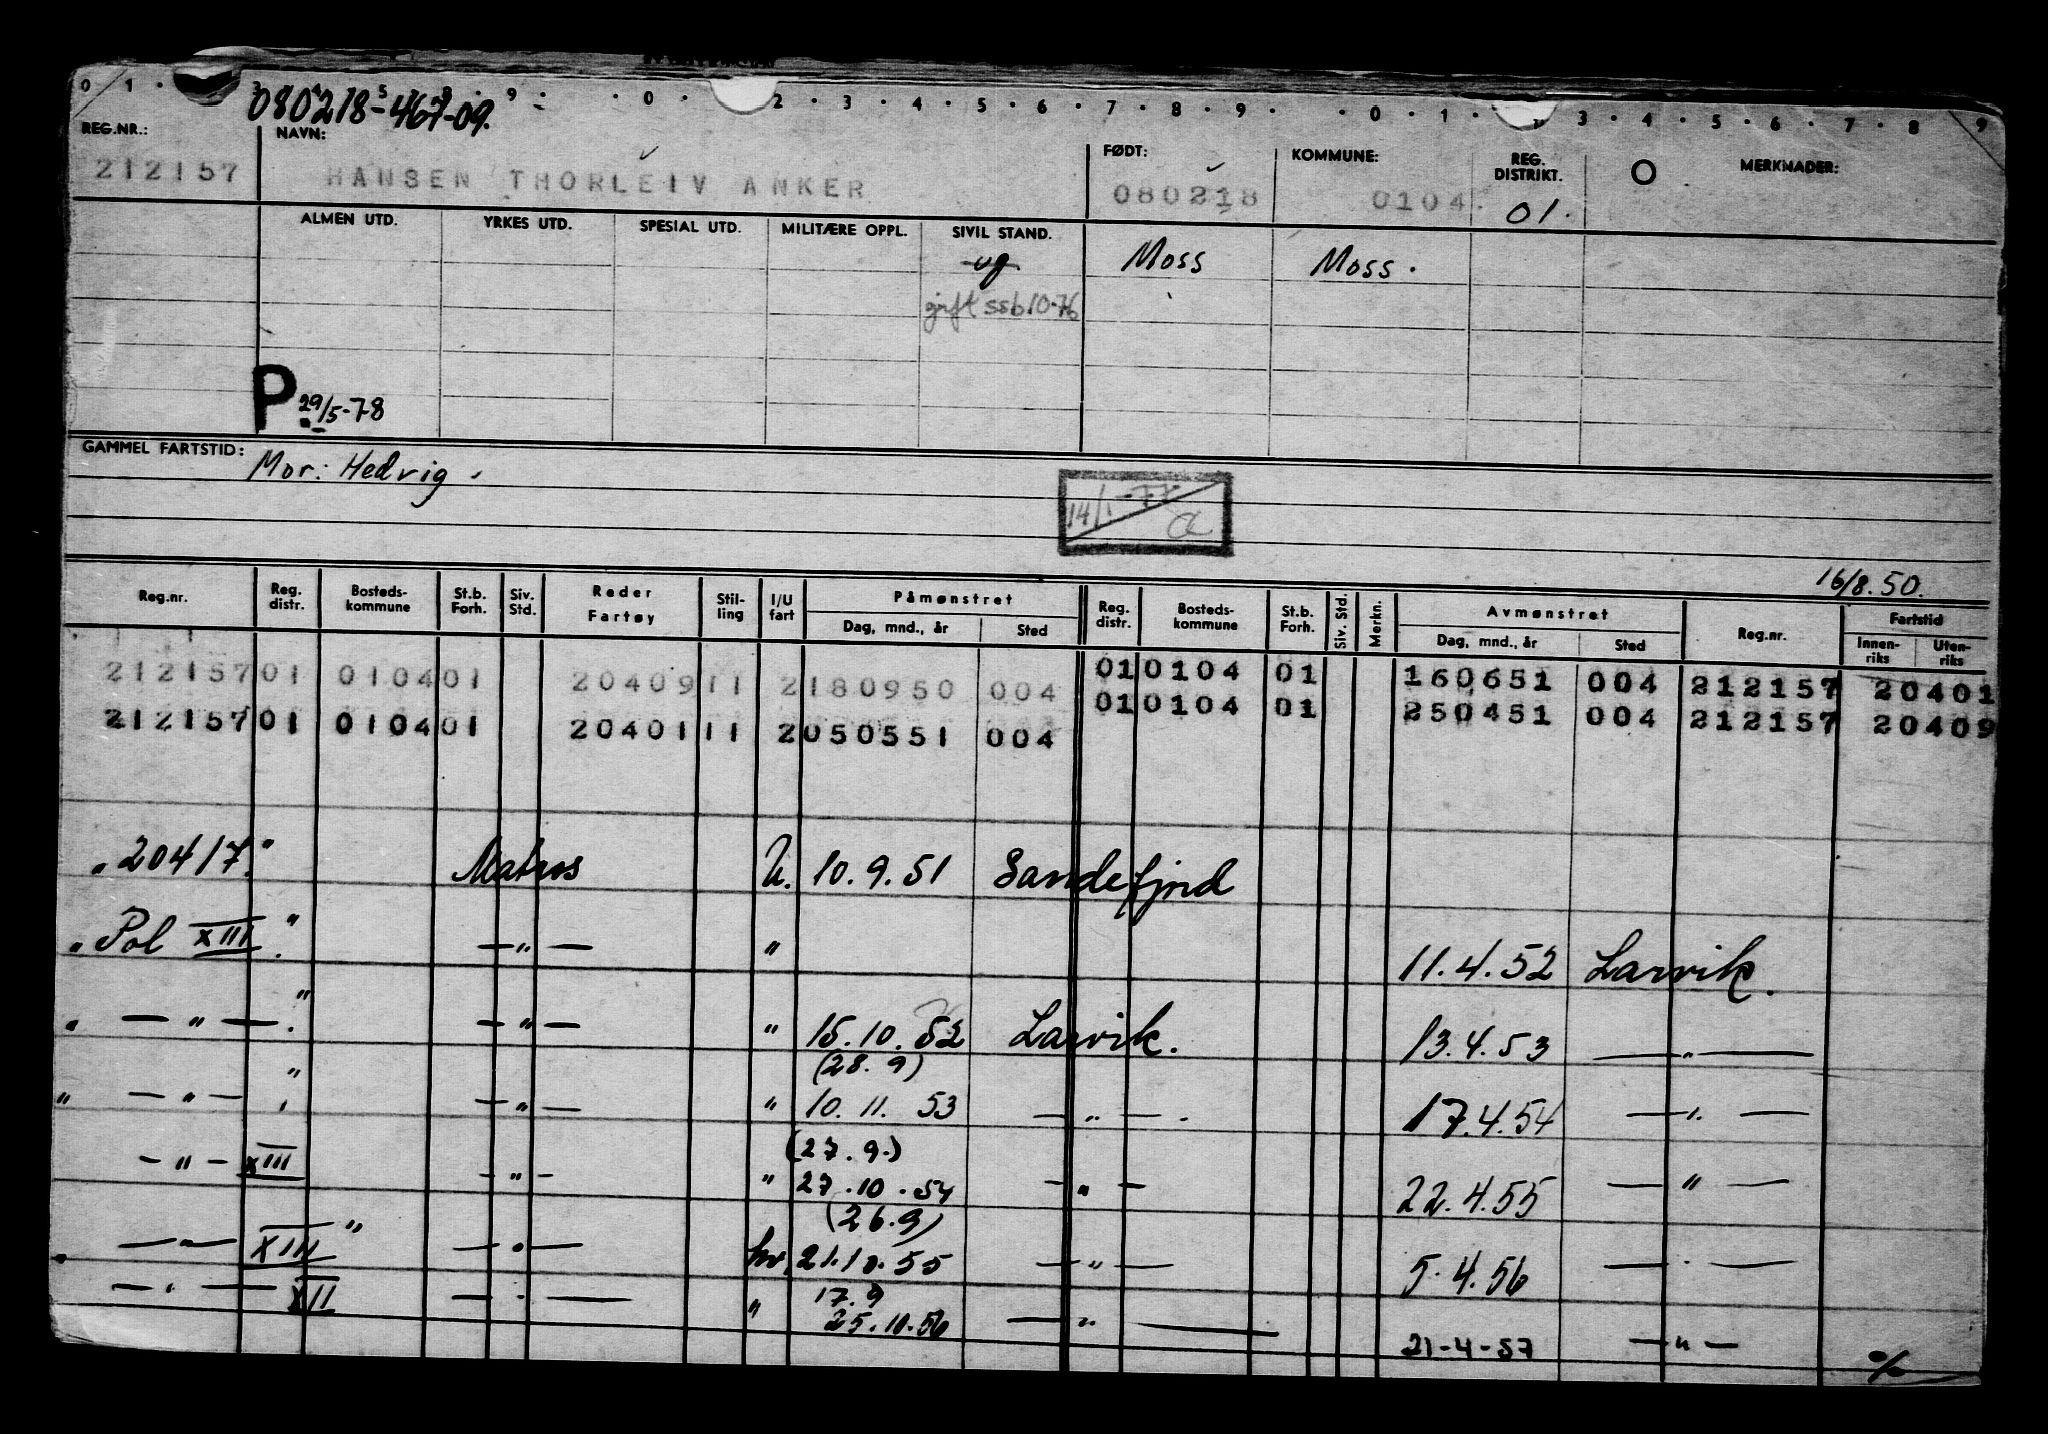 080218-467-09.
REG.NR.: NAVN: FØDT: KOMMUNE: REG. DISTRIKT. O MERKNADER:
212157 HANSEN THORLEIV ANKER 080218 0104. 01.
ALMEN UTD. YRKES UTD. SPESIAL UTD. MILITÆRE OPPL. SIVIL STAND.
ug Moss Moss.
gift ssb 10-76
P 29/5-78
GAMMEL FARTSTID: Mor: Hedvig.
14/1-77
16/8.50.
Reg.nr. Reg. distr. Bosteds-kommune St.b. Forh. Siv. Std. Reder Fartøy Stil-ling I/U fart Påmønstret Reg. distr. Bosteds-kommune St.b. Forh. Siv. Std. Merkn. Avmønstret Reg.nr. Fartstid
Dag, mnd., år Sted Dag, mnd., år Sted Innen-riks Uten-riks
212157 01 0104 01 20409 11 2 180950 004 01 0104 01 160651 004 212157 20401
212157 01 0104 01 20401 11 2 050551 004 01 0104 01 250451 004 212157 20409
"20417." Matros U. 10.9.51 Sandefjord
"Pol XIII." — " — " 11.4.52 Larvik.
" — " — ." — " — " 15.10.52 Larvik. 13.4.53 — " —
(28.9)
" — " — " — " — " 10.11.53 — " — . 17.4.54 — " —
(27.9.)
— " — XIII — " — " 27.10.54 — " — 22.4.55 — " —
(26.9)
" — " — XIII " — " — hv. 21.10.55 — " — 5.4.56 — " —
17.9
— " — XII — " — " 25.10.56 — " — 21-4-57 — " —